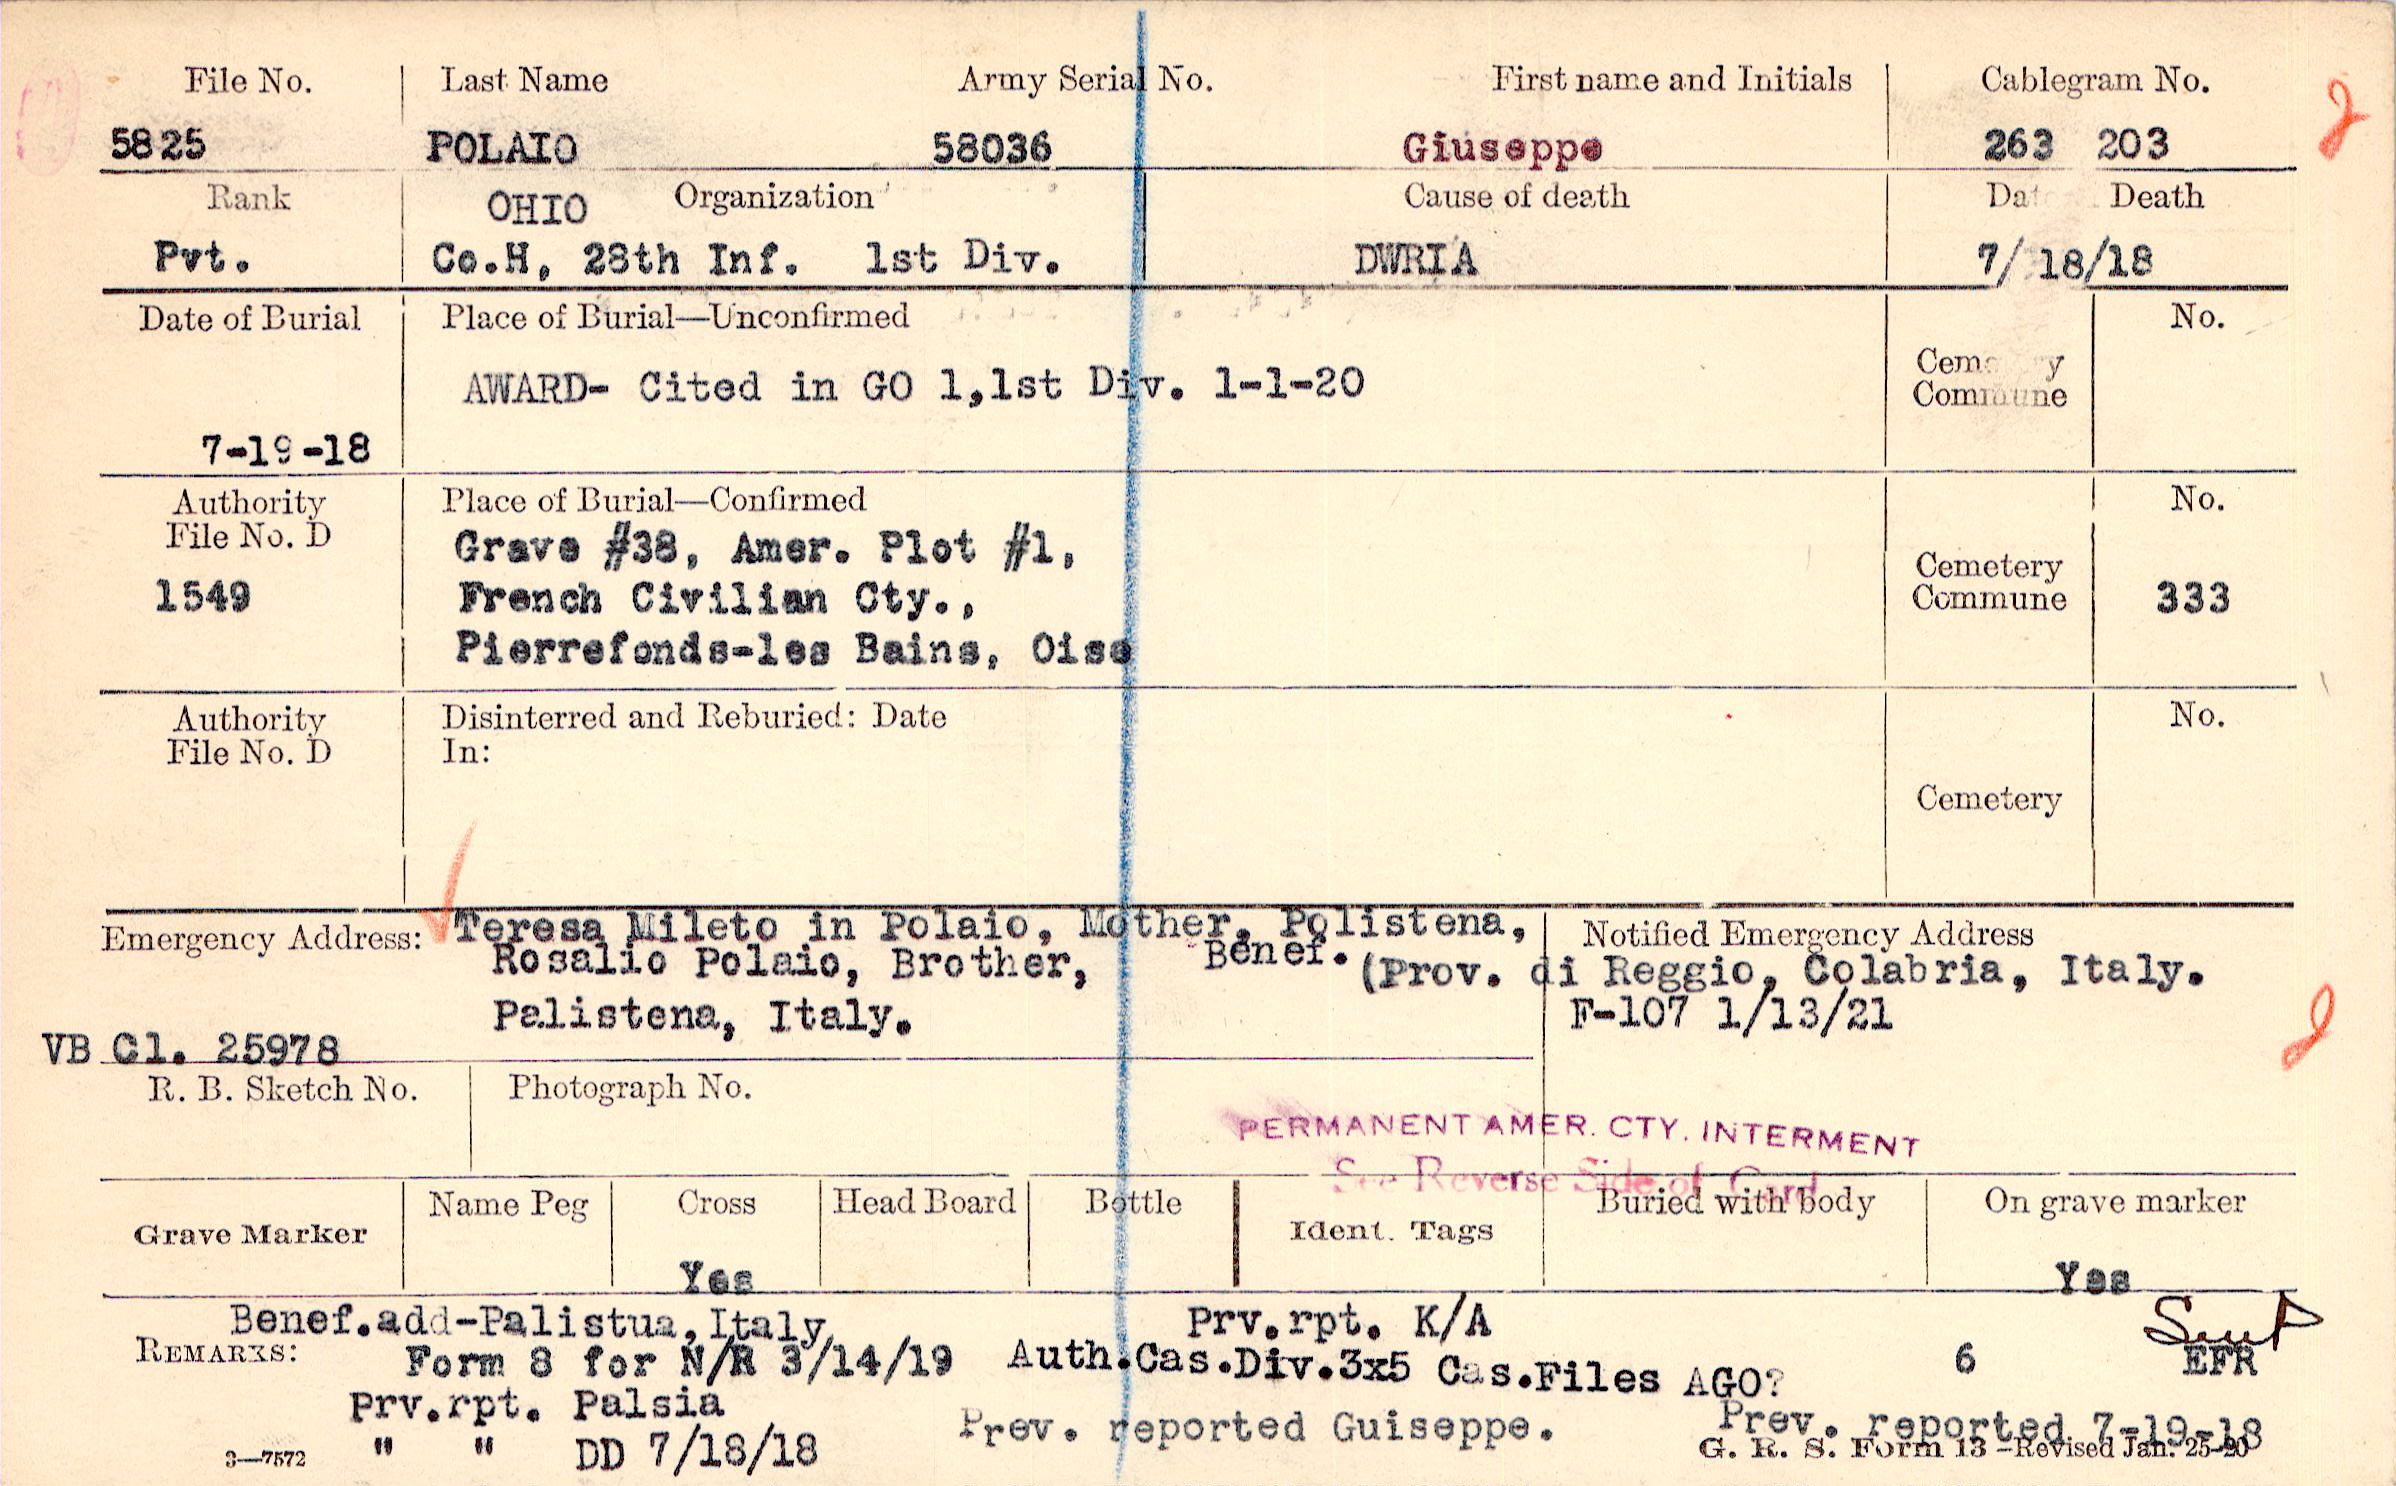 File No. Last Name Army Serial No. First name and Initials Cablegram No.
5825 POLAIO 58036 Giuseppe 263 203
Rank OHIO Organization Cause of death Death
Pvt. Co.H, 28th Inf. 1st Div. DWRIA 7/18/18
Date of Burial Place of Burial—Unconfirmed No.
Commune
AWARD- Cited in GO 1,1st Div. 1-1-20
7-19-18
Authority Place of Burial—Confirmed No.
File No. D Grave #38, Amer. Plot #1,
Cemetery
1549 French Civilian Cty., Commune 333
Pierrefonds-les Bains, Oise
Authority Disinterred and Reburied: Date No.
File No. D In:
Cemetery
Emergency Address: Teresa Mileto in Polaio, Mother, Polistena, Notified Emergency Address
Rosalio Polaio, Brother, Benef. (Prov. di Reggio, Colabria, Italy.
Palistena, Italy. F-107 1/13/21
VB Cl. 25978
R. B. Sketch No. Photograph No.
PERMANENT AMER. CTY. INTERMENT
See Reverse Side of Card
Grave Marker Name Peg Cross Head Board Bottle Ident. Tags Buried with body On grave marker
Yes Yes
Benef.add-Palistua, Italy Prv.rpt. K/A
REMARKS: Form 8 for N/R 3/14/19 Auth.Cas.Div.3x5 Cas.Files AGO? 6 EFR
Prv.rpt. Palsia Prev. reported Guiseppe. Prev. reported 7-19-18
" " DD 7/18/18
3—7572 G. R. S. Form 13—Revised Jan. 25-20